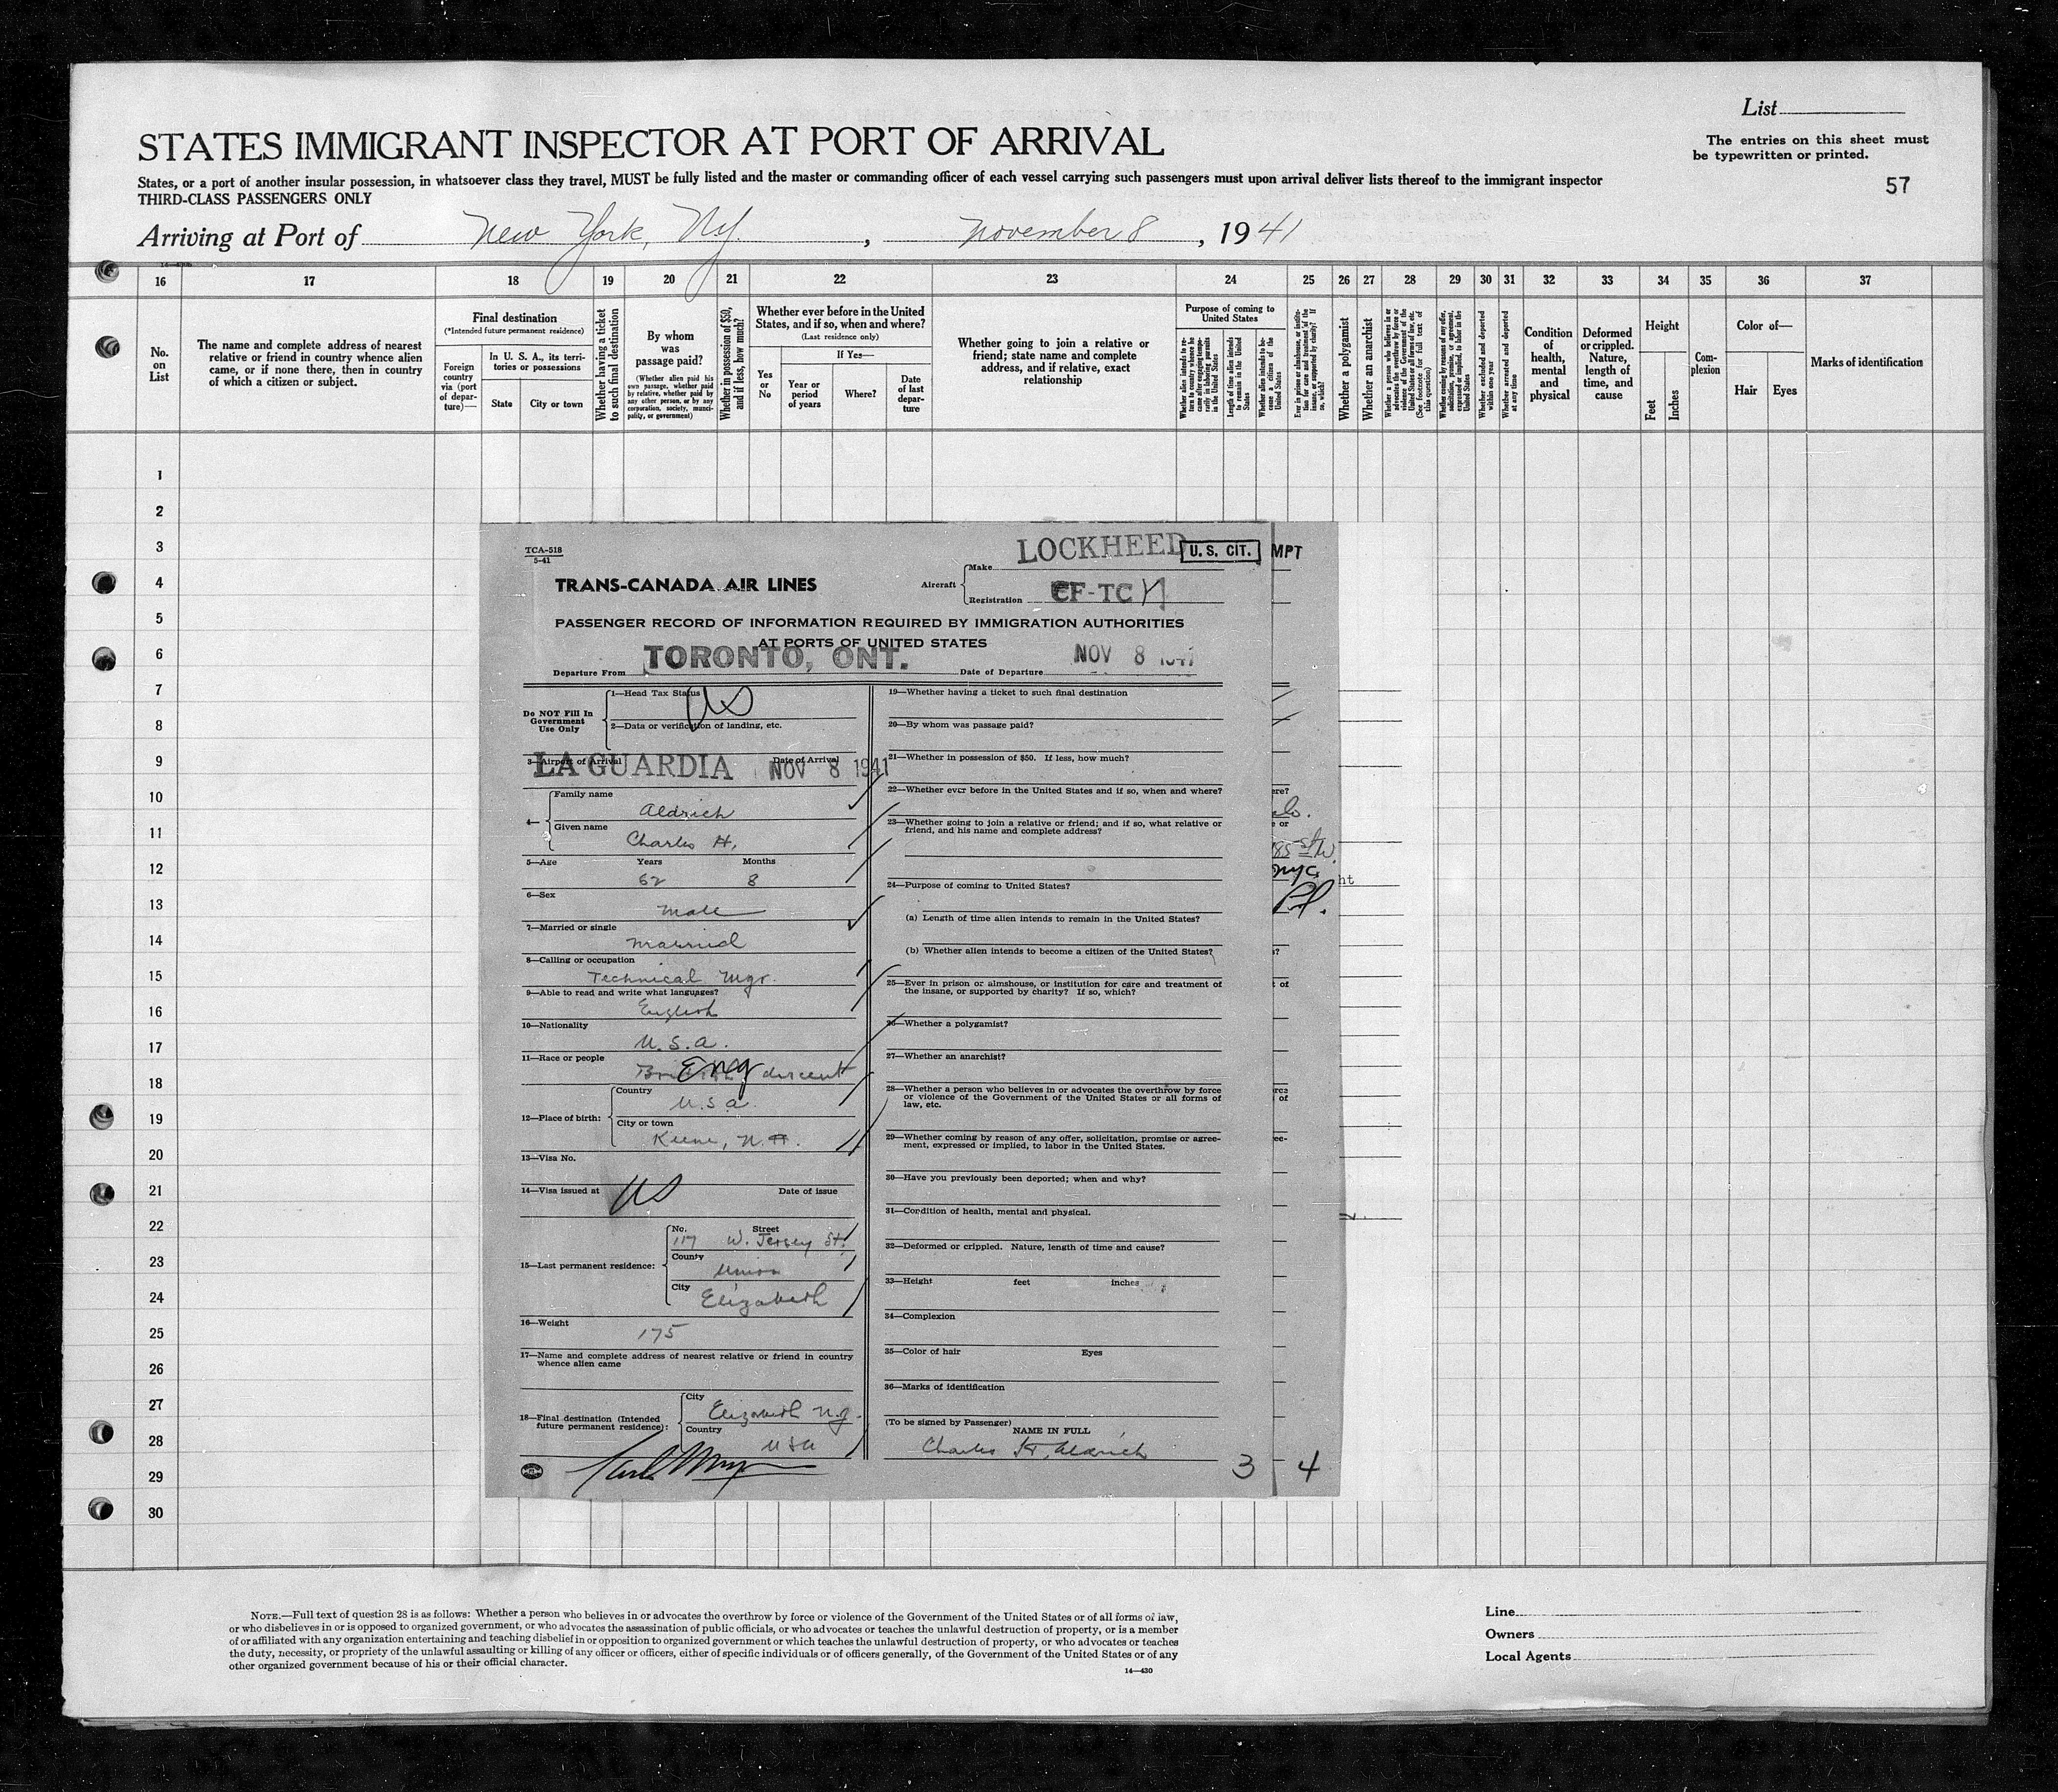 List
STATES IMMIGRANT INSPECTOR AT PORT OF ARRIVAL
The entries on this sheet must
be typewritten or printed.
States, or a port of another insular possession, in whatsoever class they travel, MUST be fully listed and the master or commanding officer of each vessel carrying such passengers must upon arrival deliver lists thereof to the immigrant inspector
THIRD-CLASS PASSENGERS ONLY
57
Arriving at Port of New York, Ny. , November 8 , 1941
16 17 18 19 20 21 22 23 24 25 26 27 28 29 30 31 32 33 34 35 36 37
No. on List
The name and complete address of nearest
relative or friend in country whence alien
came, or if none there, then in country
of which a citizen or subject.
Final destination
(*Intended future permanent residence)
Foreign country via (port of departure)—
In U. S. A., its territories or possessions
State
City or town
Whether having a ticket to such final destination
By whom was passage paid?
(Whether alien paid his own passage, whether paid by relative, whether paid by any other person, or by any corporation, society, municipality, or government)
Whether in possession of $50, and if less, how much?
Whether ever before in the United
States, and if so, when and where?
(Last residence only)
Yes or No
If Yes—
Year or period of years
Where?
Date of last departure
Whether going to join a relative or
friend; state name and complete
address, and if relative, exact
relationship
Purpose of coming to
United States
Length of time alien intends to remain in the United States
Whether alien intends to become a citizen of the United States
Whether a polygamist
Whether an anarchist
(See footnote for full text of this question)
Whether excluded and deported within one year
Whether arrested and deported at any time
Condition of health, mental and physical
Deformed or crippled. Nature, length of time, and cause
Height
Feet
Inches
Complexion
Color of—
Hair
Eyes
Marks of identification
1
2
3
4
5
6
7
8
9
10
11
12
13
14
15
16
17
18
19
20
21
22
23
24
25
26
27
28
29
30
TCA-518
5-41
TRANS-CANADA AIR LINES
Aircraft
Make LOCKHEED
U. S. CIT.
MPT
Registration CF-TC
PASSENGER RECORD OF INFORMATION REQUIRED BY IMMIGRATION AUTHORITIES
AT PORTS OF UNITED STATES
Departure From TORONTO, ONT. Date of Departure NOV 8 1941
Do NOT Fill In
Government
Use Only
1—Head Tax Status US
2—Data or verification of landing, etc.
3—Airport of Arrival LA GUARDIA Date of Arrival NOV 8 1941
4— Family name
Aldrich
Given name
Charles H.
5—Age Years Months
62 8
6—Sex
Male
7—Married or single
Married
8—Calling or occupation
Technical Mgr.
9—Able to read and write what languages?
English
10—Nationality
U.S.A.
11—Race or people
Eng descent
12—Place of birth:
Country
U.S.A.
City or town
Keene, N.H.
13—Visa No.
14—Visa issued at US Date of issue
15—Last permanent residence:
No. Street
117 W. Jersey St.
County
Union
City
Elizabeth
16—Weight
175
17—Name and complete address of nearest relative or friend in country
whence alien came
18—Final destination (Intended
future permanent residence):
City
Elizabeth N.J.
Country
USA
19—Whether having a ticket to such final destination
20—By whom was passage paid?
21—Whether in possession of $50. If less, how much?
22—Whether ever before in the United States and if so, when and where?
23—Whether going to join a relative or friend; and if so, what relative or
friend, and his name and complete address?
24—Purpose of coming to United States?
(a) Length of time alien intends to remain in the United States?
(b) Whether alien intends to become a citizen of the United States?
25—Ever in prison or almshouse, or institution for care and treatment of
the insane, or supported by charity? If so, which?
26—Whether a polygamist?
27—Whether an anarchist?
28—Whether a person who believes in or advocates the overthrow by force
or violence of the Government of the United States or all forms of
law, etc.
29—Whether coming by reason of any offer, solicitation, promise or agree-
ment, expressed or implied, to labor in the United States.
30—Have you previously been deported; when and why?
31—Condition of health, mental and physical.
32—Deformed or crippled. Nature, length of time and cause?
33—Height feet inches
34—Complexion
35—Color of hair Eyes
36—Marks of identification
(To be signed by Passenger)
NAME IN FULL
Charles H. Aldrich
3 4
NYC
ht
NOTE.—Full text of question 28 is as follows: Whether a person who believes in or advocates the overthrow by force or violence of the Government of the United States or of all forms of law,
or who disbelieves in or is opposed to organized government, or who advocates the assassination of public officials, or who advocates or teaches the unlawful destruction of property, or is a member
of or affiliated with any organization entertaining and teaching disbelief in or opposition to organized government or which teaches the unlawful destruction of property, or who advocates or teaches
the duty, necessity, or propriety of the unlawful assaulting or killing of any officer or officers, either of specific individuals or of officers generally, of the Government of the United States or of any
other organized government because of his or their official character.
14—430
Line
Owners
Local Agents